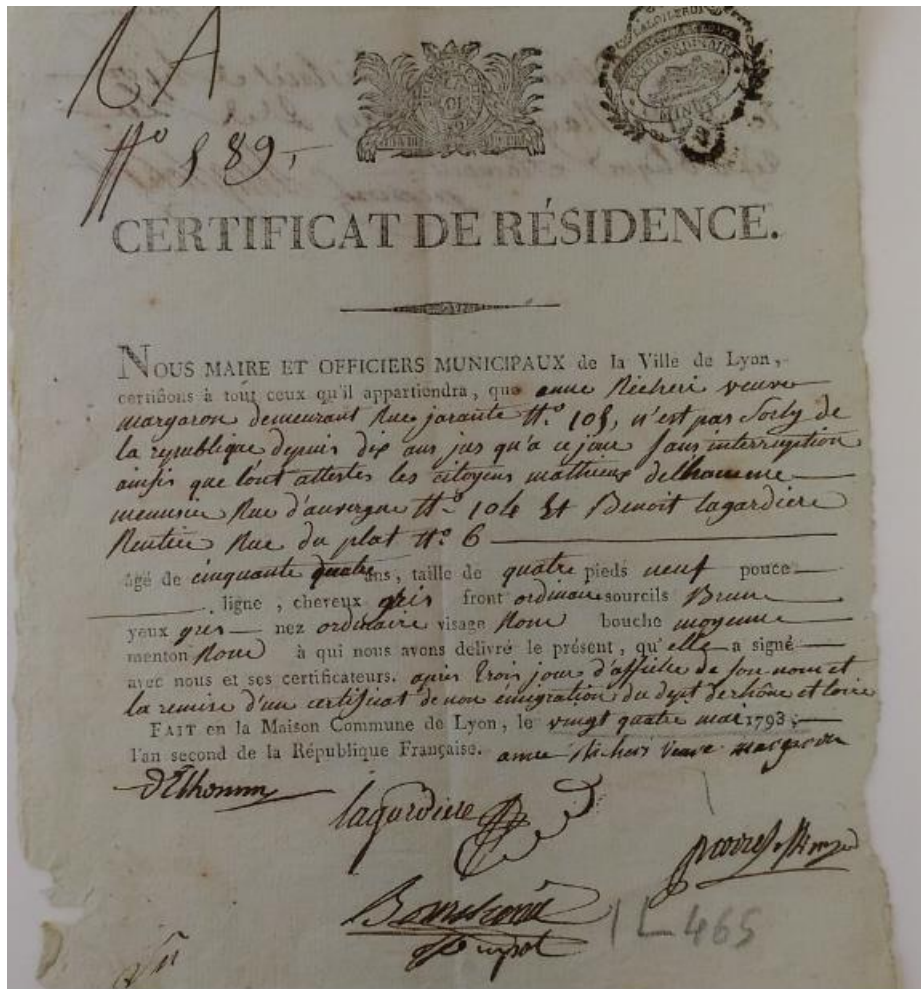 A
N° 889
EXTRAORDINAIRE
MINUTE
CERTIFICAT DE RÉSIDENCE.
NOUS MAIRE ET OFFICIERS MUNICIPAUX de la Ville de Lyon,
certifions à tout ceux qu'il appartiendra, que anne Richeri veuve
margaron demeurant Rue jarante N° 105, n'est pas Sorty de
la republique depuis dix ans jus qu'a ce jour Sans interruption
ainsi que l'ont attestés les citoyens mathieu delhomme
menusier Rue d'auvergne N° 104 Et Benoit lagardiere
Rentier Rue du plat N° 6
âgé de cinquante quatre ans, taille de quatre pieds neuf pouce
ligne, cheveux gris front ordinaire sourcils Brun
yeux gris nez ordinaire visage Rond bouche moyenne
menton Rond à qui nous avons délivré le présent, qu'elle a signé
avec nous et ses certificateurs. apres trois jour d'affiche de son nom et
la remise d'un certificat de non émigration du dept de rhône et loire
FAIT en la Maison Commune de Lyon, le vingt quatre mai 1793,
l'an second de la République Française. anne Richeri veuve margaron
lagardiere
1 L 465